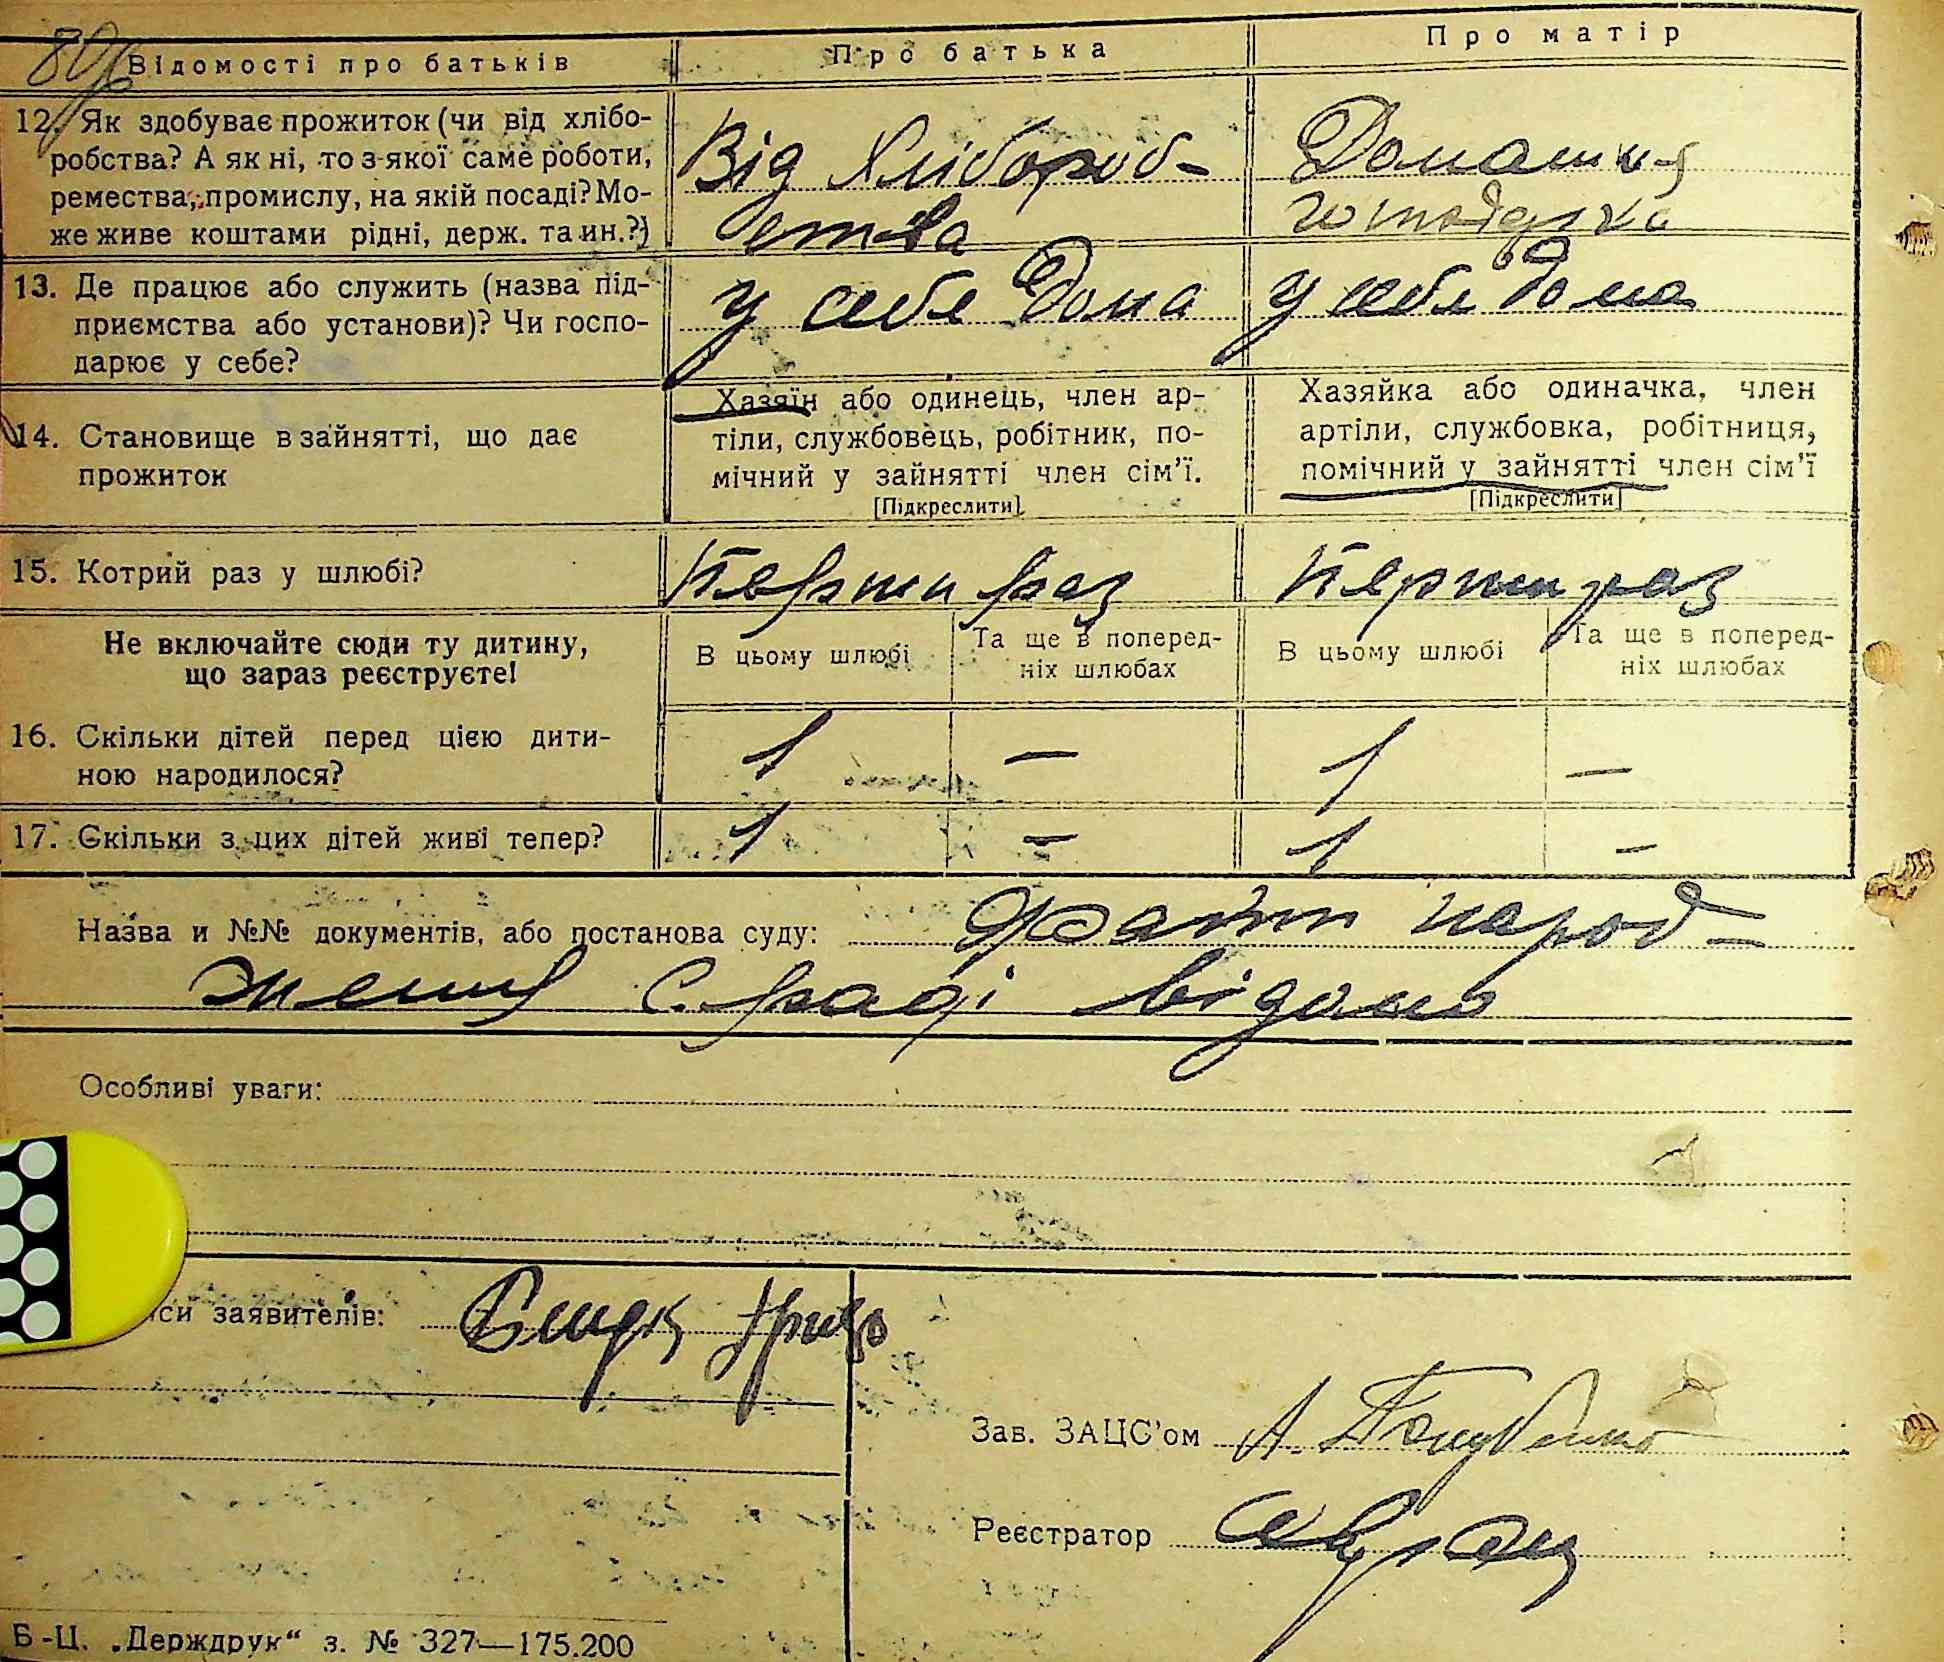 Відомості про батьків
Про батька
Про матір
12. Як здобуває прожиток (чи від хлібо-
робства? А як ні, то з якої саме роботи,
ремества, промислу, на якій посаді? Мо-
же живе коштами рідні, держ. та ин.?)
Від Хлібороб-
ства
Домашня
13. Де працює або служить (назва під-
приємства або установи)? Чи госпо-
дарює у себе?
у себе Дома
у себе Дома
14. Становище в зайнятті, що дає
прожиток
Хазяїн або одинець, член ар-
тіли, службовець, робітник, по-
мічний у зайнятті член сім'ї.
[Підкреслити]
Хазяйка або одиначка, член
артіли, службовка, робітниця,
помічний у зайнятті член сім'ї
[Підкреслити]
15. Котрий раз у шлюбі?
Перши раз
Перши раз
Не включайте сюди ту дитину,
що зараз реєструєте!
В цьому шлюбі
Та ще в поперед-
ніх шлюбах
В цьому шлюбі
Та ще в поперед-
ніх шлюбах
16. Скільки дітей перед цією дити-
ною народилося?
1 — 1 —
17. Скільки з цих дітей живі тепер?
1 — 1 —
Назва и №№ документів, або постанова суду: Факт народ-
ження С. раді відомо
Особливі уваги:
заявителів:
Зав. ЗАЦС'ом А.
Реєстратор
Б-Ц. „Держдрук“ з. № 327—175.200